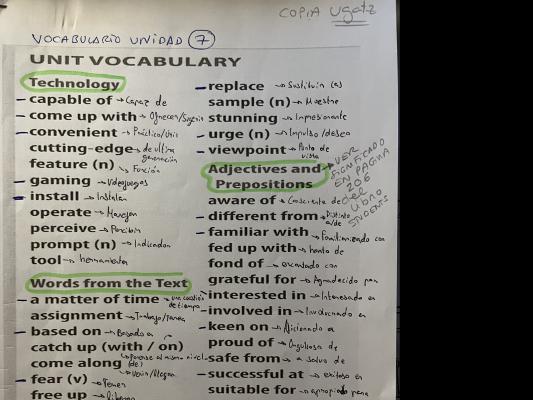 COPIA Ugatz
VOCABULARIO UNIDAD 7
UNIT VOCABULARY
Technology
– capable of → Capaz de
– come up with → Ofrecer/Sugerir
– convenient → Práctico/útil
cutting-edge → de última generación
feature (n) → Función
– gaming → Videojuegos
– install → Instalar
operate → Manejar
perceive → Percibir
prompt (n) → Indicador
tool → herramienta
Words from the Text
– a matter of time → una cuestión de tiempo
assignment → Trabajo/tarea
– based on → Basado en
catch up (with / on) → ponerse al mismo nivel (de)
come along → Venir/llegar
– fear (v) → Temer
free up → liberar
– replace → Sustituir (a)
sample (n) → Muestra
stunning → Impresionante
– urge (n) → Impulso/deseo
– viewpoint → Punto de vista
Adjectives and Prepositions
→ VER SIGNIFICADO EN PAGINA 206 del LIBRO STUDENTS
aware of → Consciente de
– different from → Distinto a/de
– familiar with → Familiarizado con
fed up with → harto de
fond of → encantado con
grateful for → Agradecido por
– interested in → Interesado en
– involved in → Involucrado en
– keen on → Aficionado a
proud of → Orgulloso de
– safe from → a salvo de
– successful at → exitoso en
suitable for → apropiado para